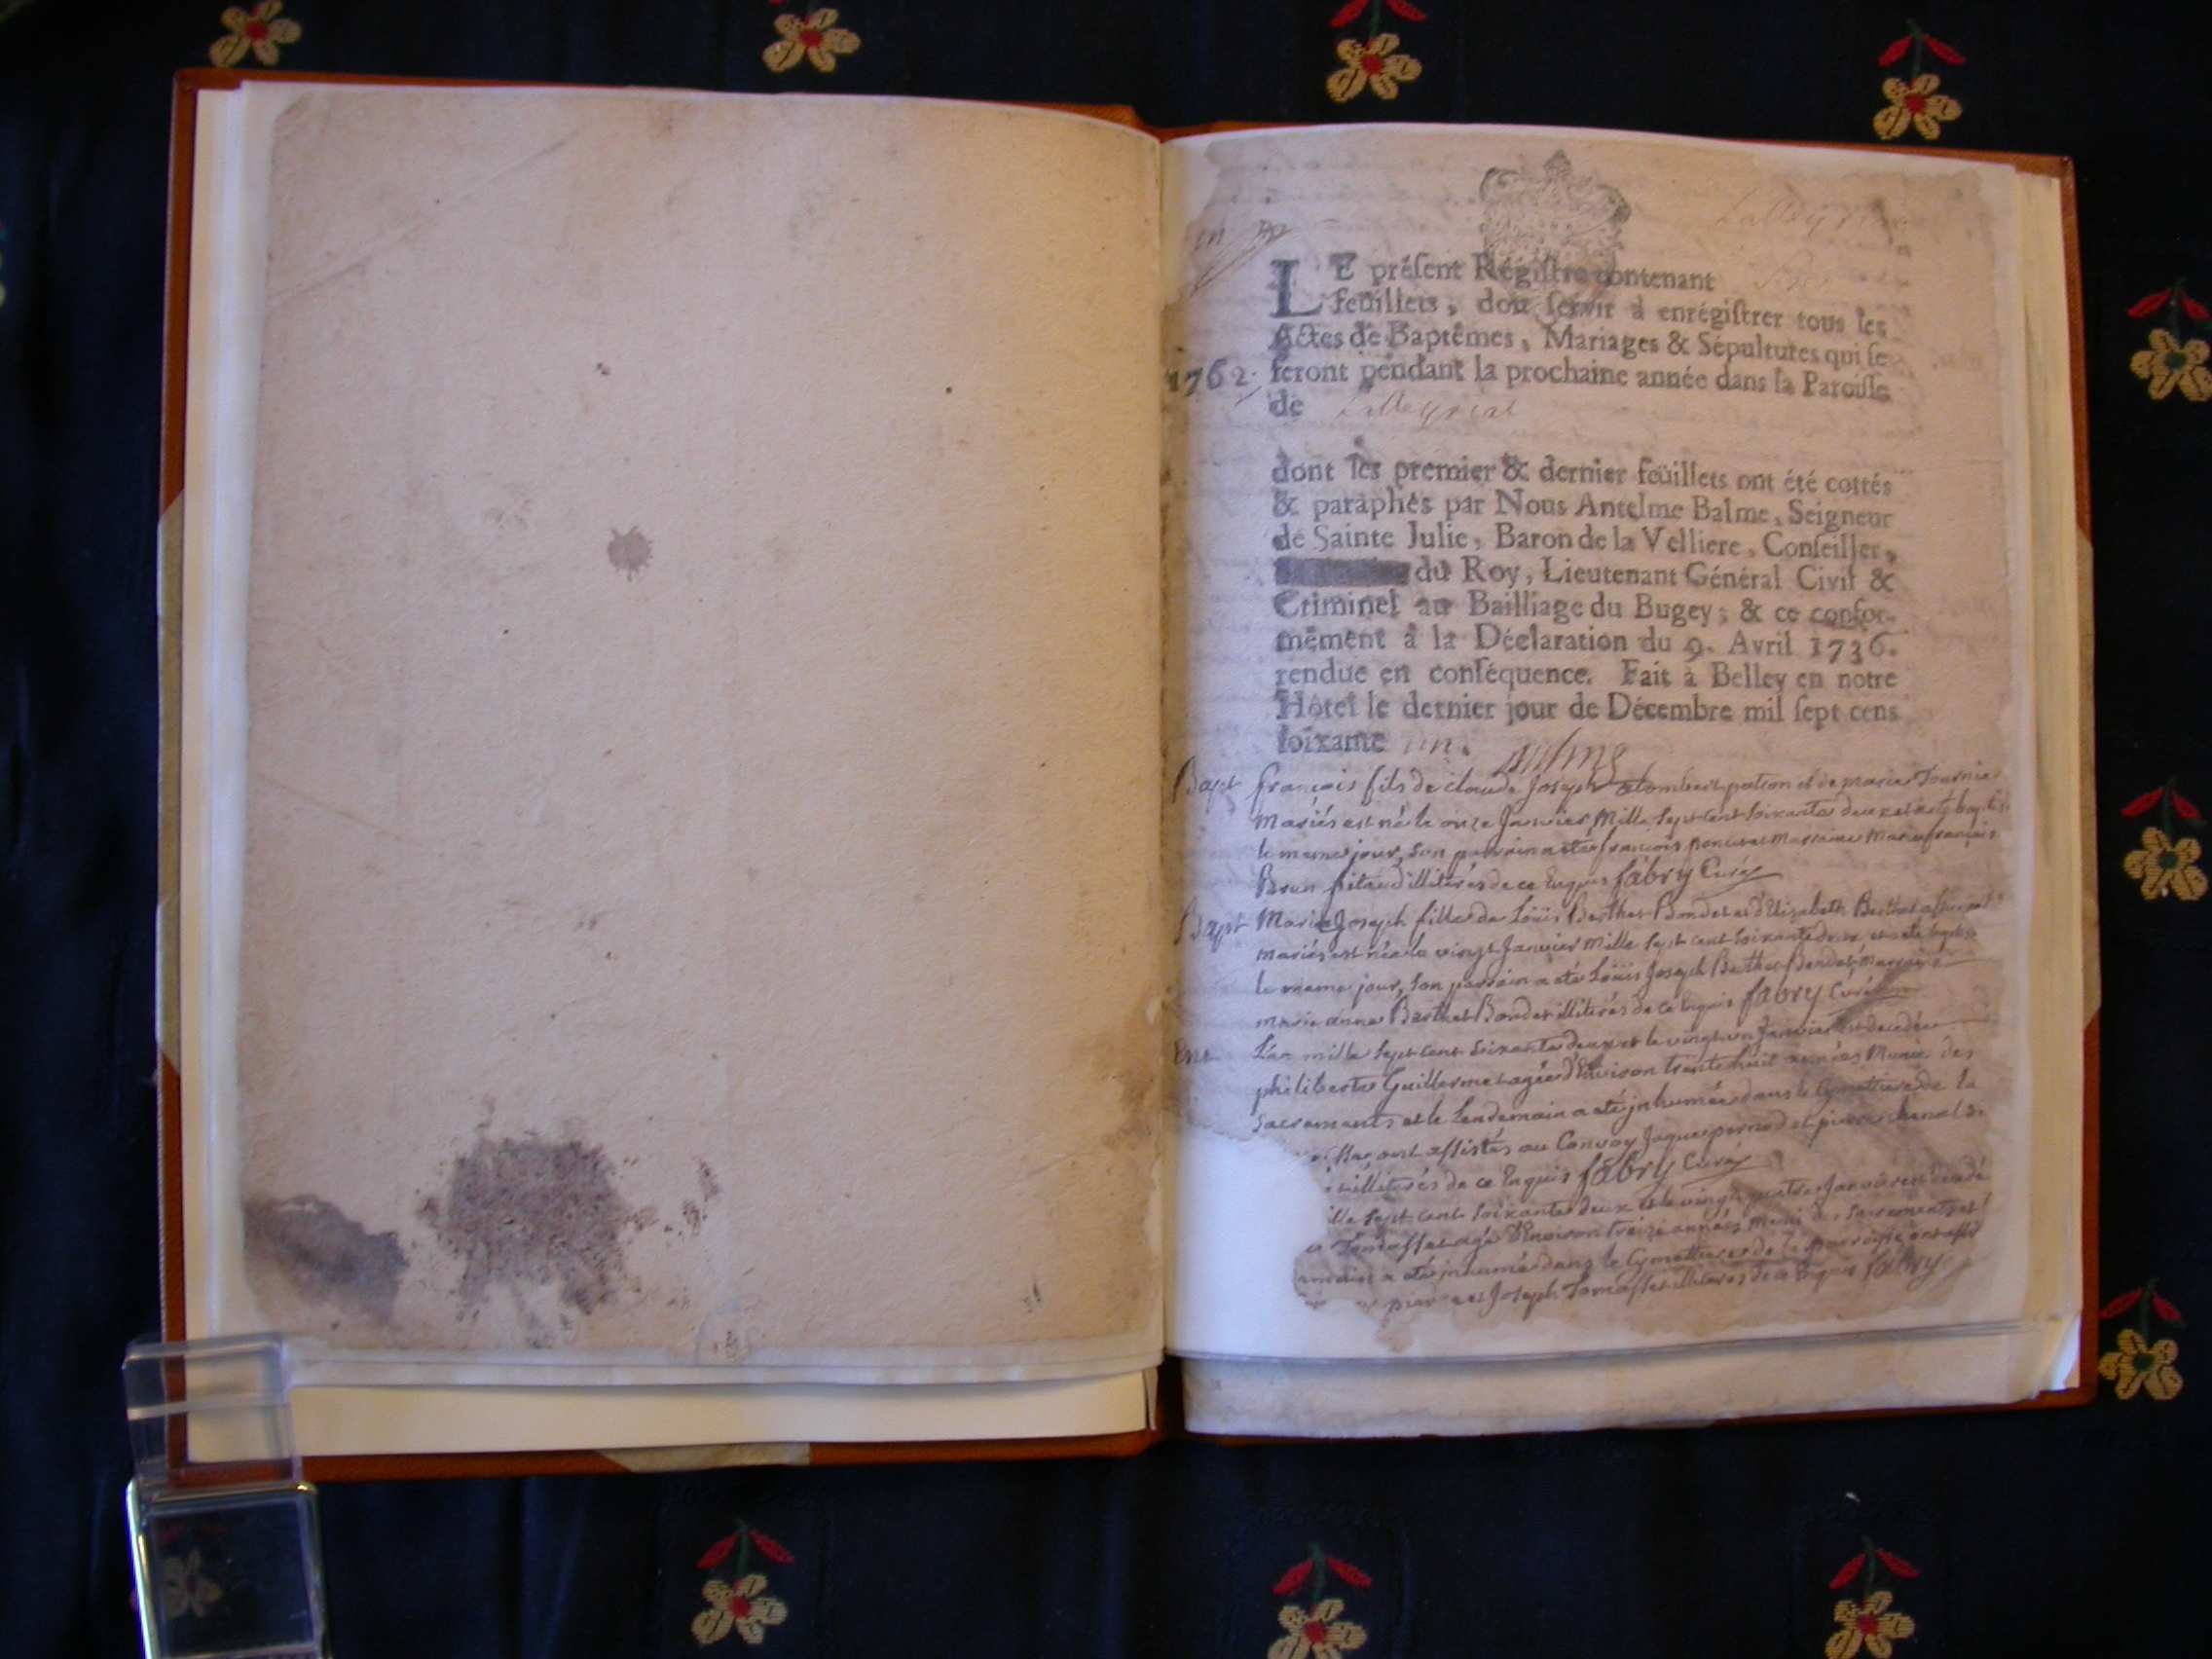 LE préſent Régiſtre contenant
feüillets, doit ſervir à enrégiſtrer tous les
Actes de Baptêmes, Mariages & Sépultures qui ſe
1762. feront pendant la prochaine année dans la Paroiſſe
de Lalleyriat
dont les premier & dernier feüillets ont été cottés
& paraphés par Nous Antelme Balme, Seigneur
de Sainte Julie, Baron de la Velliere, Conſeiller,
du Roy, Lieutenant Général Civil &
Criminel au Bailliage du Bugey; & ce confor-
mément à la Déclaration du 9. Avril 1736.
rendue en conſéquence. Fait à Belley en notre
Hôtel le dernier jour de Décembre mil ſept cens
ſoixante un. Balme
Bapt françois fils de claude Joseph et de marie
Mariés est né le onze Janvier Mille Sept cent Soixante deux et a eté baptisé
le meme jour, Son parrain a eté françois et Marraine Marie françoise
Brun illiterés de ce Enquis fabry Curé
Bapt Marie Joseph fille de Loüis Berthet Bondet et d'Elisabeth Berthet
mariés est née le vingt Janvier Mille Sept cent Soixante deux et a eté baptisée
le meme jour, Son parrain a eté Loüis Joseph Berthet Bondet marraine
marie anne Berthet Bondet illiterés de ce Enquis fabry Curé
L'an mille Sept cent Soixante deux et le vingt un Janvier est decedée
philiberte Guillermet agée d'Environ trente huit années Munie des
Sacrements et le Lendemain a eté jnhumée dans le Cymettiere de la
ont assistés au Convoy Jaque pernod et pierre
illiterés de ce Enquis fabry Curé
Sept cent Soixante deux et le vingt quatre Janvier est decedé
Tomasset agé d'Environ treize années muni des Sacrements et
a eté jnhumé dans le Cymettiere de la parroisse ont assisté
et Joseph Tomasset illiterés de ce Enquis fabry